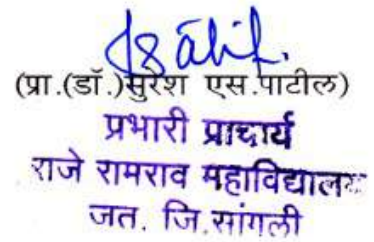 (प्रा.(डॉ.)सुरेश एस.पाटील)
प्रभारी प्राचार्य
राजे रामराव महाविद्यालय
जत. जि.सांगली